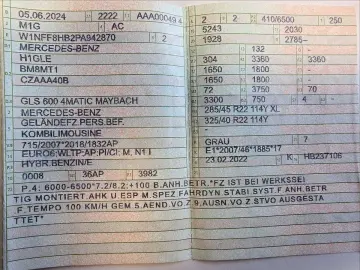 05.06.2024 2222 AAA00049 4
M1G AC
W1NFF8HB2PA942870 2
MERCEDES-BENZ
H1GLE
BM8MT1
CZAAA40B
GLS 600 4MATIC MAYBACH
MERCEDES-BENZ
GELÄNDEFZ.PERS.BEF.
KOMBILIMOUSINE
715/2007*2018/1832AP
EURO6;WLTP;AP;PI/CI; M, N1 I
HYBR.BENZIN/E
0008 36AP 3982
L 2 2 410/6500 250
5243 2030
1928 2785-
132 -
304 3360 3360
1650 1800 -
1650 1800 -
72 3750 70
3300 750 4 -
285/45 R22 114Y XL
325/40 R22 114Y
-
GRAU 7
E1*2007/46*1885*17
23.02.2022 K HB237106
P.4: 6000-6500*7.2/8.2:+100 B.ANH.BETR.*FZ IST BEI WERKSSEI
TIG MONTIERT.AHK U.ESP M.SPEZ.FAHRDYN.STABI.SYST.F.ANH.BETR
.F.TEMPO 100 KM/H GEM.5.AEND.VO.Z.9.AUSN.VO.Z.STVO AUSGESTA
TTET*